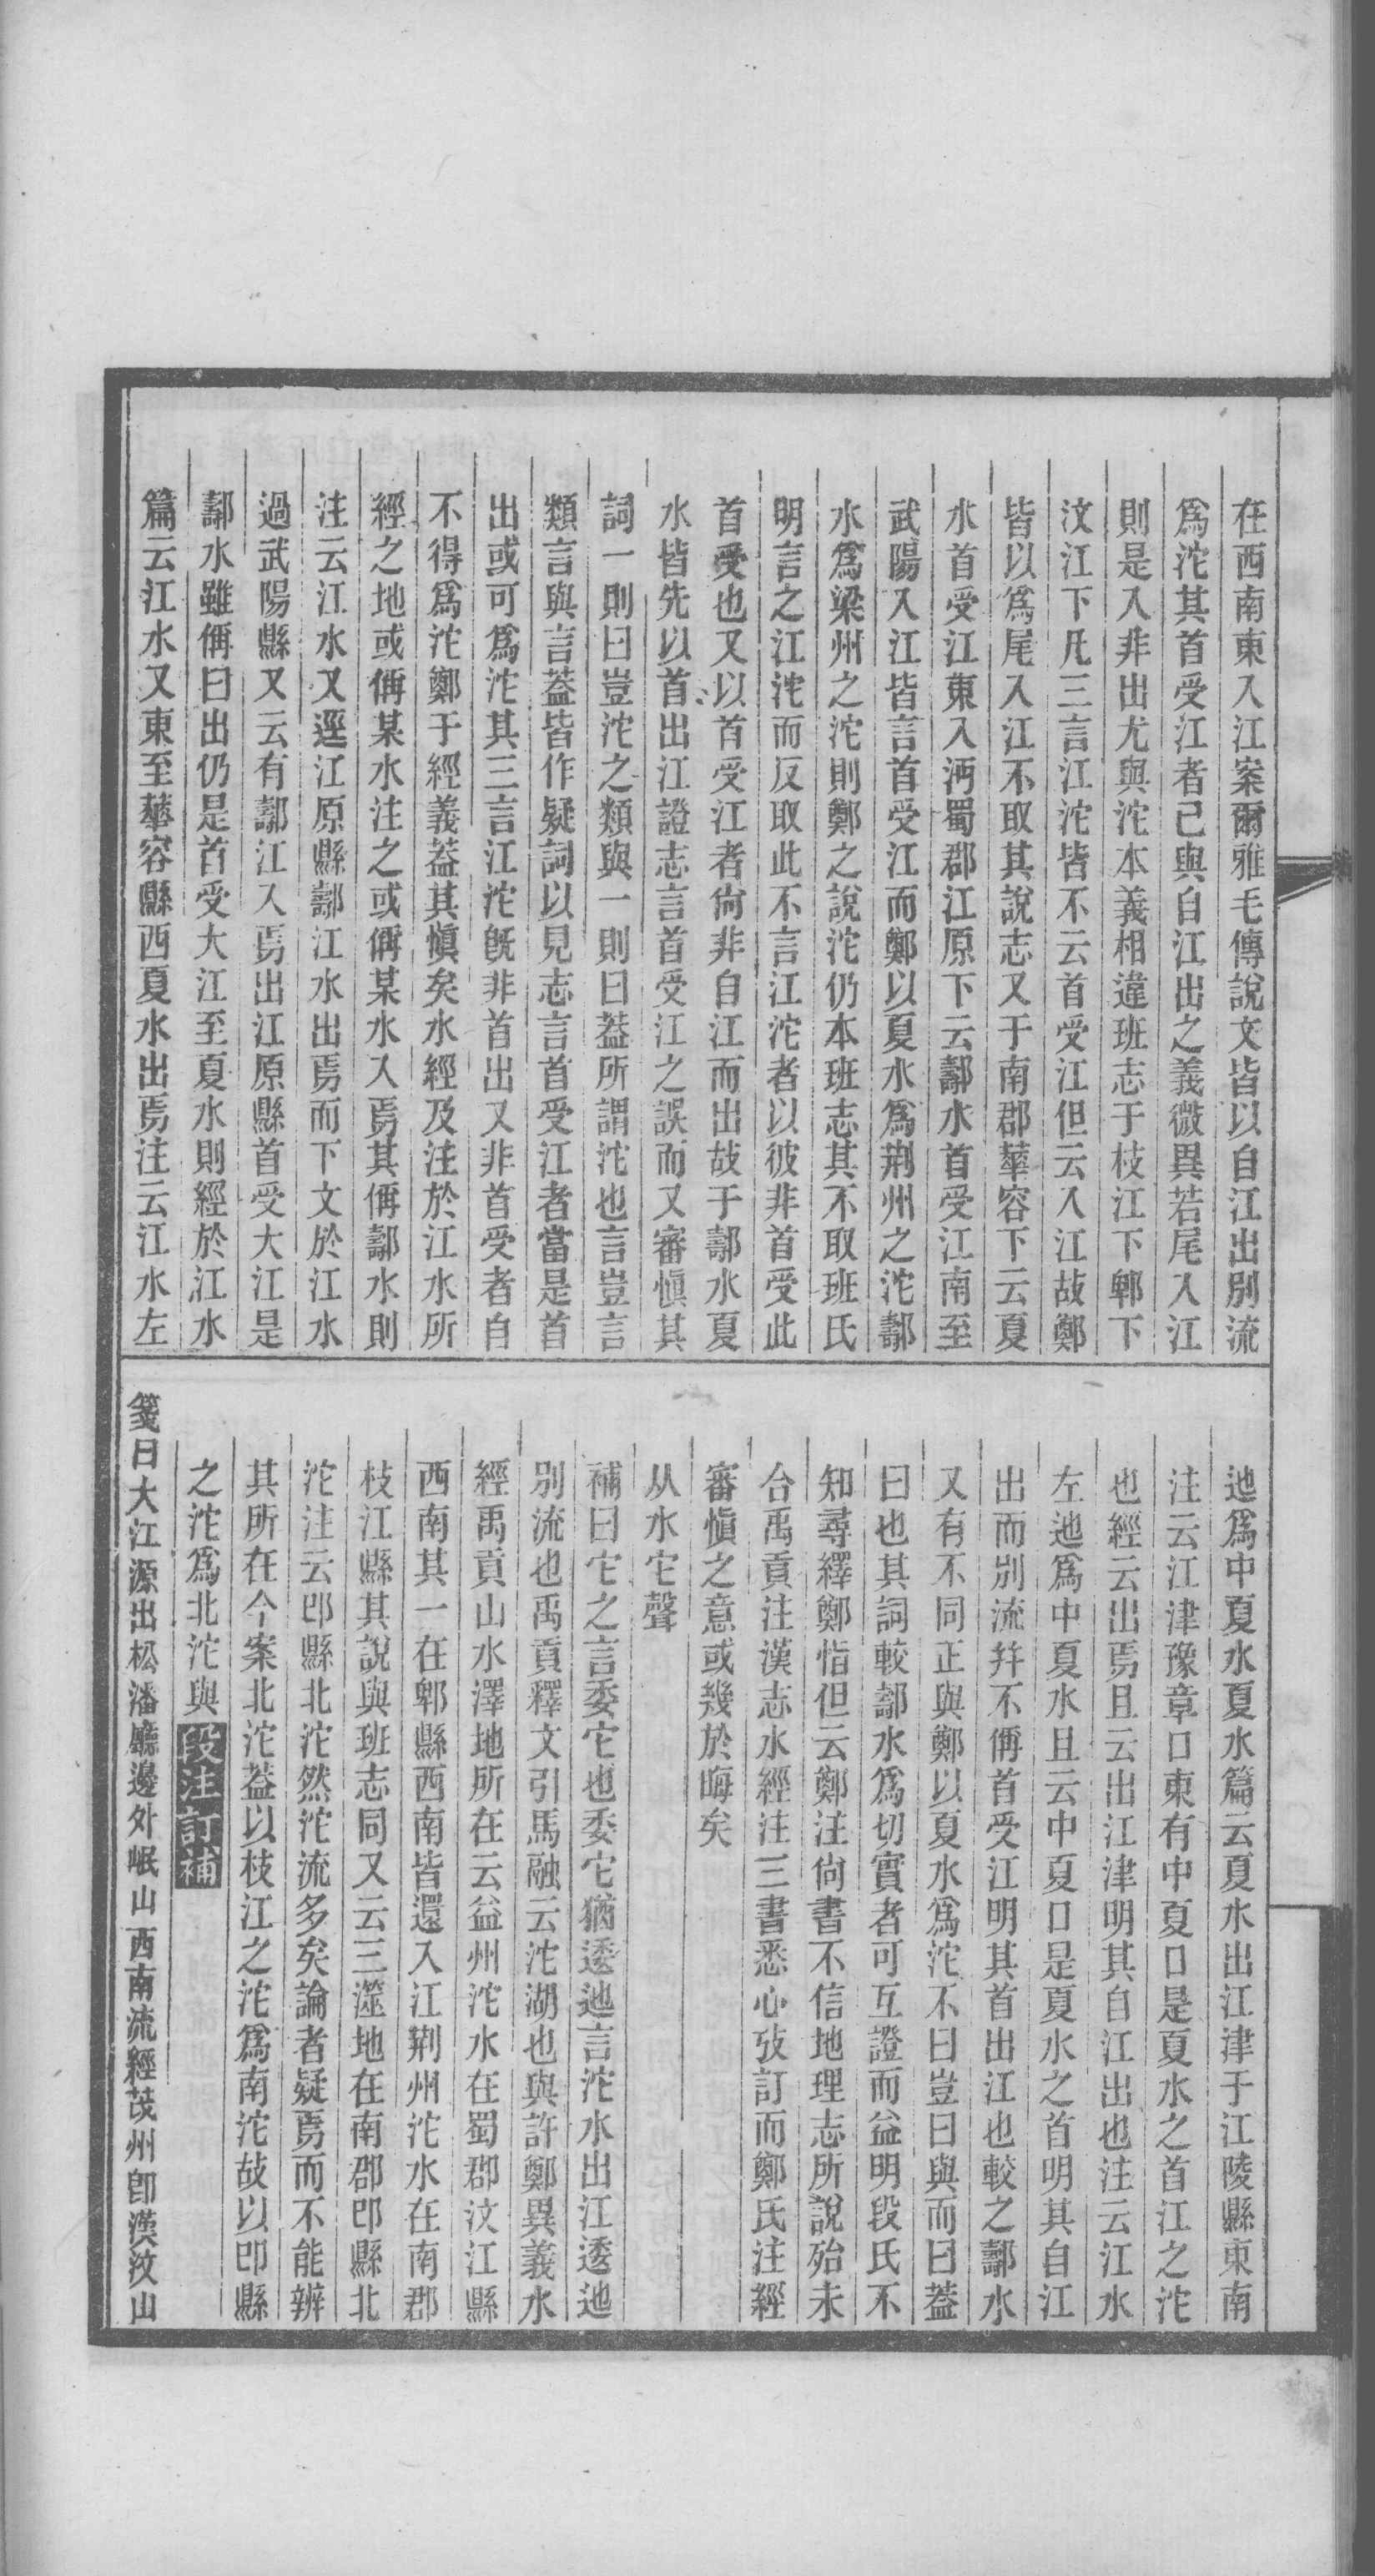 在西南東入江案爾雅毛傳說文皆以自江出別流
爲沱其首受江者已與自江出之義微異若尾入江
則是入非出尤與沱本義相違班志于枝江下郫下
汶江下凡三言江沱皆不云首受江但云入江故鄭
皆以爲尾入江不取其說志又于南郡華容下云夏
水首受江東入沔蜀郡江原下云䣢水首受江南至
武陽入江皆言首受江而鄭以夏水爲荆州之沱䣢
水爲梁州之沱則鄭之說沱仍本班志其不取班氏
明言之江沱而反取此不言江沱者以彼非首受此
首受也又以首受江者尙非自江而出故于䣢水夏
水皆先以首出江證志言首受江之誤而又審愼其
詞一則曰豈沱之類與一則曰葢所謂沱也言豈言
類言與言葢皆作疑詞以見志言首受江者當是首
出或可爲沱其三言江沱旣非首出又非首受者自
不得爲沱鄭于經義葢其愼矣水經及注於江水所
經之地或偁某水注之或偁某水入焉其偁䣢水則
注云江水又逕江原縣䣢江水出焉而下文於江水
過武陽縣又云有䣢江入焉出江原縣首受大江是
䣢水雖偁曰出仍是首受大江至夏水則經於江水
篇云江水又東至華容縣西夏水出焉注云江水左
迆爲中夏水夏水篇云夏水出江津于江陵縣東南
注云江津豫章口東有中夏口是夏水之首江之沱
也經云出焉且云出江津明其自江出也注云江水
左迆爲中夏水且云中夏口是夏水之首明其自江
出而別流幷不偁首受江明其首出江也較之䣢水
又有不同正與鄭以夏水爲沱不曰豈曰與而曰葢
曰也其詞較䣢水爲切實者可互證而益明段氏不
知尋繹鄭恉但云鄭注尙書不信地理志所說殆未
合禹貢注漢志水經注三書悉心攷訂而鄭氏注經
審愼之意或幾於晦矣
从水它聲
補曰它之言委它也委它猶逶迆言沱水出江逶迆
別流也禹貢釋文引馬融云沱湖也與許鄭異義水
經禹貢山水澤地所在云益州沱水在蜀郡汶江縣
西南其一在郫縣西南皆還入江荆州沱水在南郡
枝江縣其說與班志同又云三澨地在南郡邔縣北
沱注云邔縣北沱然沱流多矣論者疑焉而不能辨
其所在今案北沱葢以枝江之沱爲南沱故以邔縣
之沱爲北沱與段注訂補
箋曰大江源出松潘廳邊外岷山西南流經茂州卽漢汶山